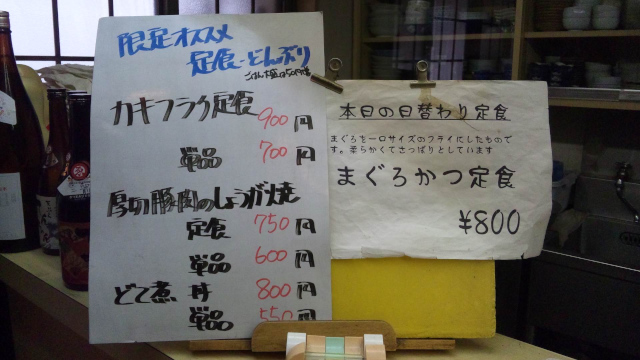 限定オススメ
定食・どんぶり
カキフライ定食 900円
単品 700円
厚切豚肉のしょうが焼
定食 750円
単品 600円
どて煮 丼 800円
単品 550円
本日の日替わり定食
まぐろを一口サイズのフライにしたもので
す。柔らかくてさっぱりとしています
まぐろかつ定食
¥800